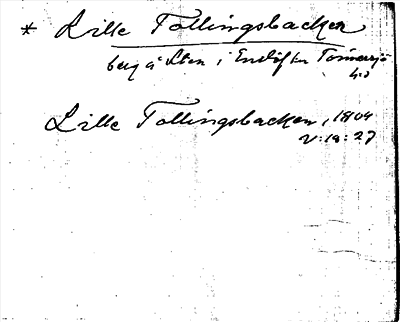 * Lille Tollingsbacken
berg å Sten i Enslöfs sn Tönnersjö
hd
Lille Tollingsbacken, 1804
V: 19: 27